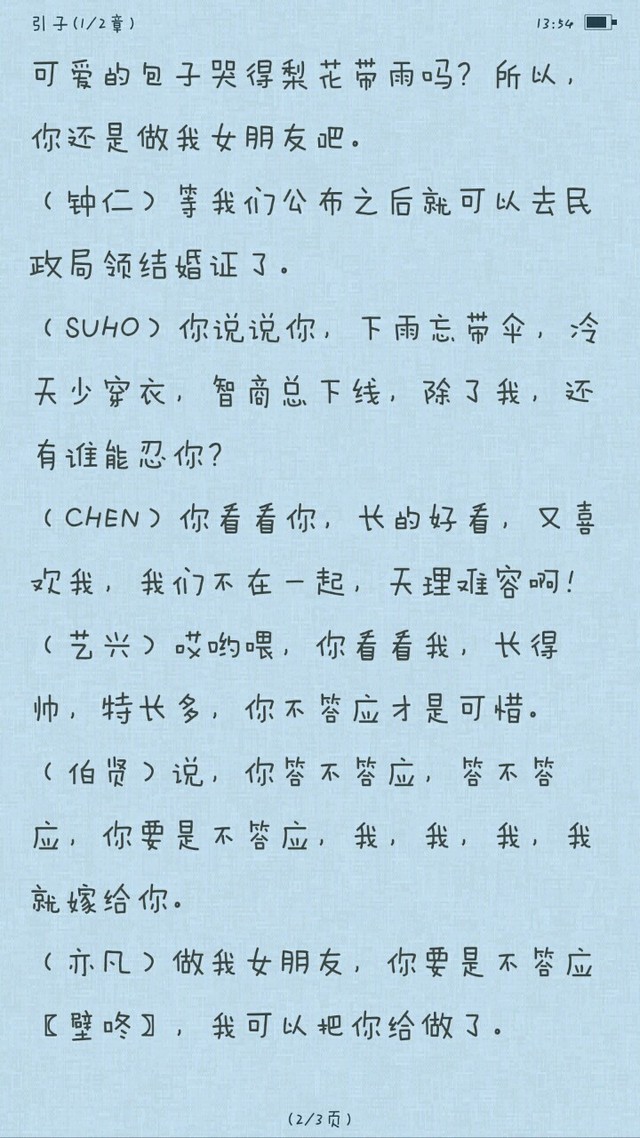 引子(1/2章) 13:54
可爱的包子哭得梨花带雨吗？所以，
你还是做我女朋友吧。
（钟仁）等我们公布之后就可以去民
政局领结婚证了。
（SUHO）你说说你，下雨忘带伞，冷
天少穿衣，智商总下线，除了我，还
有谁能忍你？
（CHEN）你看看你，长的好看，又喜
欢我，我们不在一起，天理难容啊！
（艺兴）哎哟喂，你看看我，长得
帅，特长多，你不答应才是可惜。
（伯贤）说，你答不答应，答不答
应，你要是不答应，我，我，我，我
就嫁给你。
（亦凡）做我女朋友，你要是不答应
〖壁咚〗，我可以把你给做了。
(2/3页)